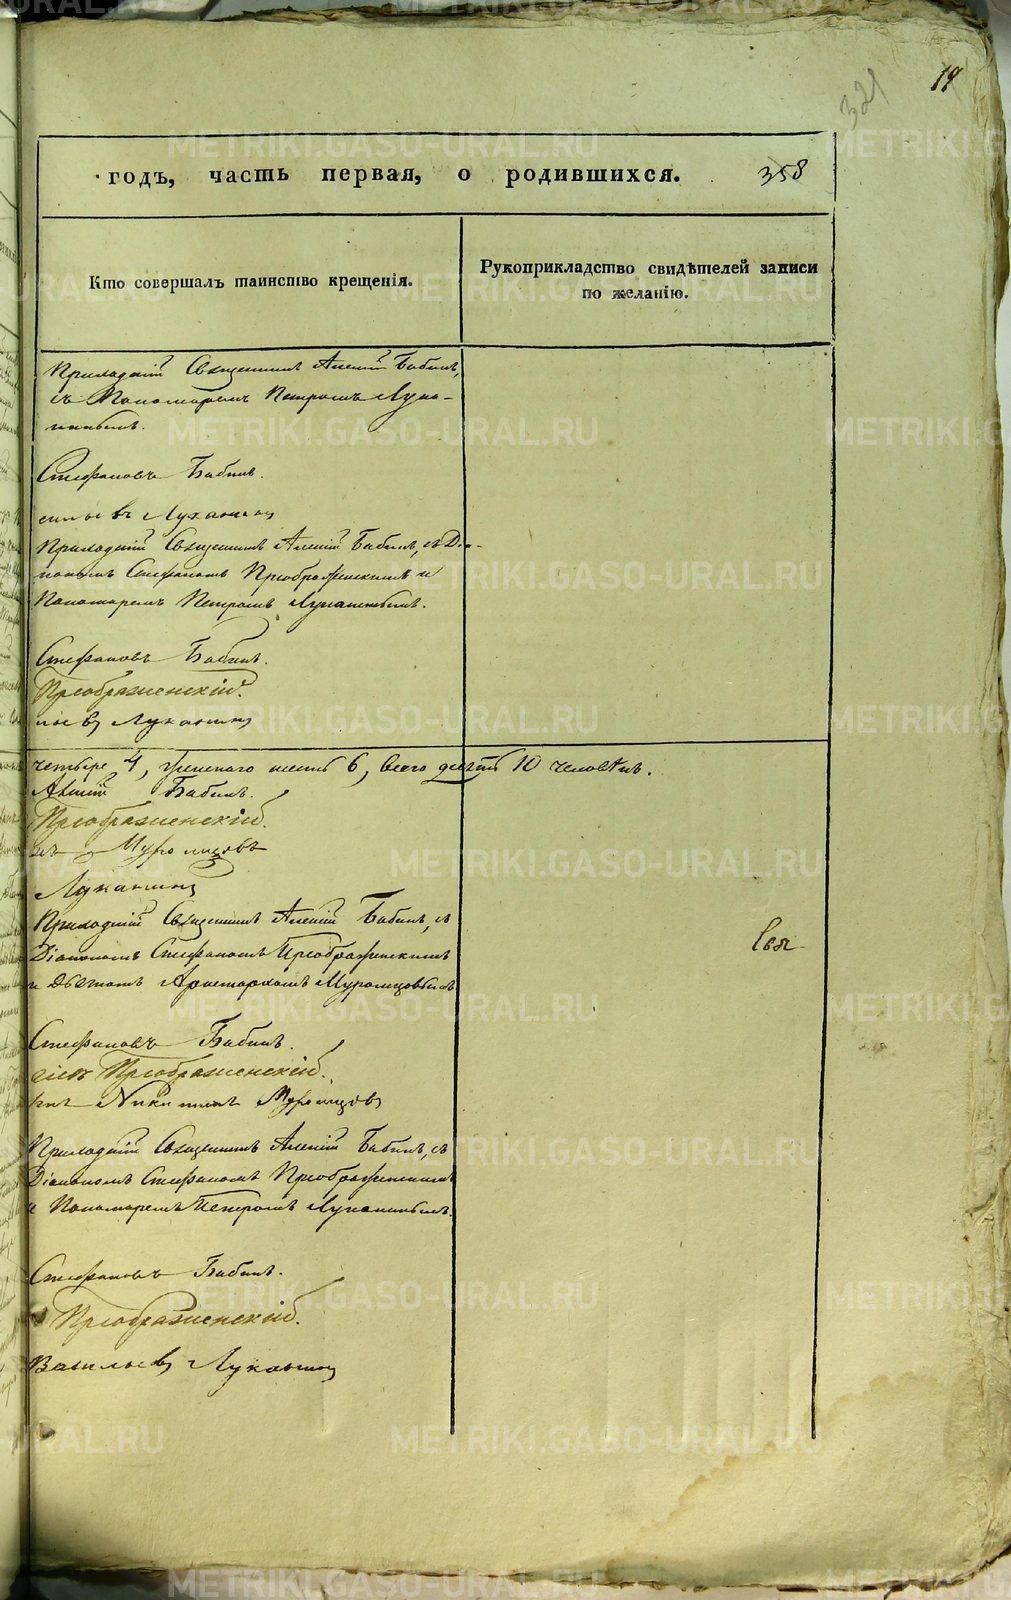 19
321
годъ, часть первая, о родившихся. 358
Кто совершалъ таинство крещенія.
Рукоприкладство свидѣтелей записи
по желанію.
Приходскій Священникъ Алексій Бабинъ,
съ Пономаремъ Петромъ Лука-
нинымъ.
Стефановъ Бабинъ.
въ Луканинъ
Приходскій Священникъ Алексій Бабинъ, съ Діа-
кономъ Стефаномъ Преображенскимъ и
Пономаремъ Петромъ Луканинымъ.
Стефановъ Бабинъ.
Преображенскій.
Луканинъ
четыре 4, женскаго шесть 6, всего десять 10 человѣкъ.
Алексій Бабинъ.
Преображенскій.
Муромцовъ
Луканинъ
Приходскій Священникъ Алексій Бабинъ, съ
Діакономъ Стефаномъ Преображенскимъ
и дьячкомъ Аристархомъ Муромцовымъ
Стефановъ Бабинъ.
Преображенскій.
Муромцовъ
Приходскій Священникъ Алексій Бабинъ, съ
Діакономъ Стефаномъ Преображенскимъ
и Пономаремъ Петромъ Луканинымъ.
Стефановъ Бабинъ.
Преображенскій.
Васильевъ Луканинъ
METRIKI.GASO-URAL.RU